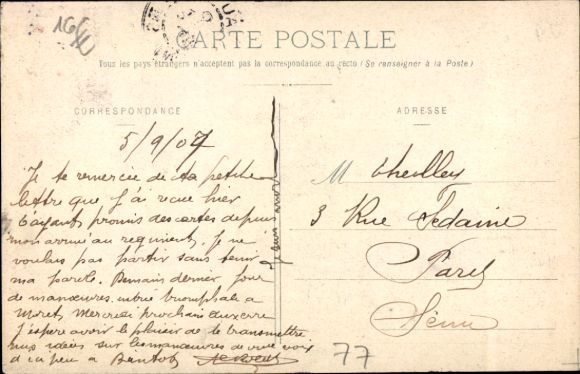 16/11
CARTE POSTALE
Tous les pays étrangers n'acceptent pas la correspondance au recto (Se renseigner à la Poste)
CORRESPONDANCE
ADRESSE
5/9/07
Je te remercie de ta petite
lettre que j'ai reçue hier
t'ayant promis des cartes depuis
mon arrivé au regiment. Je ne
voulais pas partir sans tenir
ma parole. Demain dernier jour
de manœuvres. entrée triomphale a
Moret, Mercredi prochain auxerre
J'espère avoir le plaisir de te transmettre
mes idées sur les manœuvres de vive voix
d'ici peu a Bientot
M Theilley
3 Rue Sedaine
Paris
Seine
77